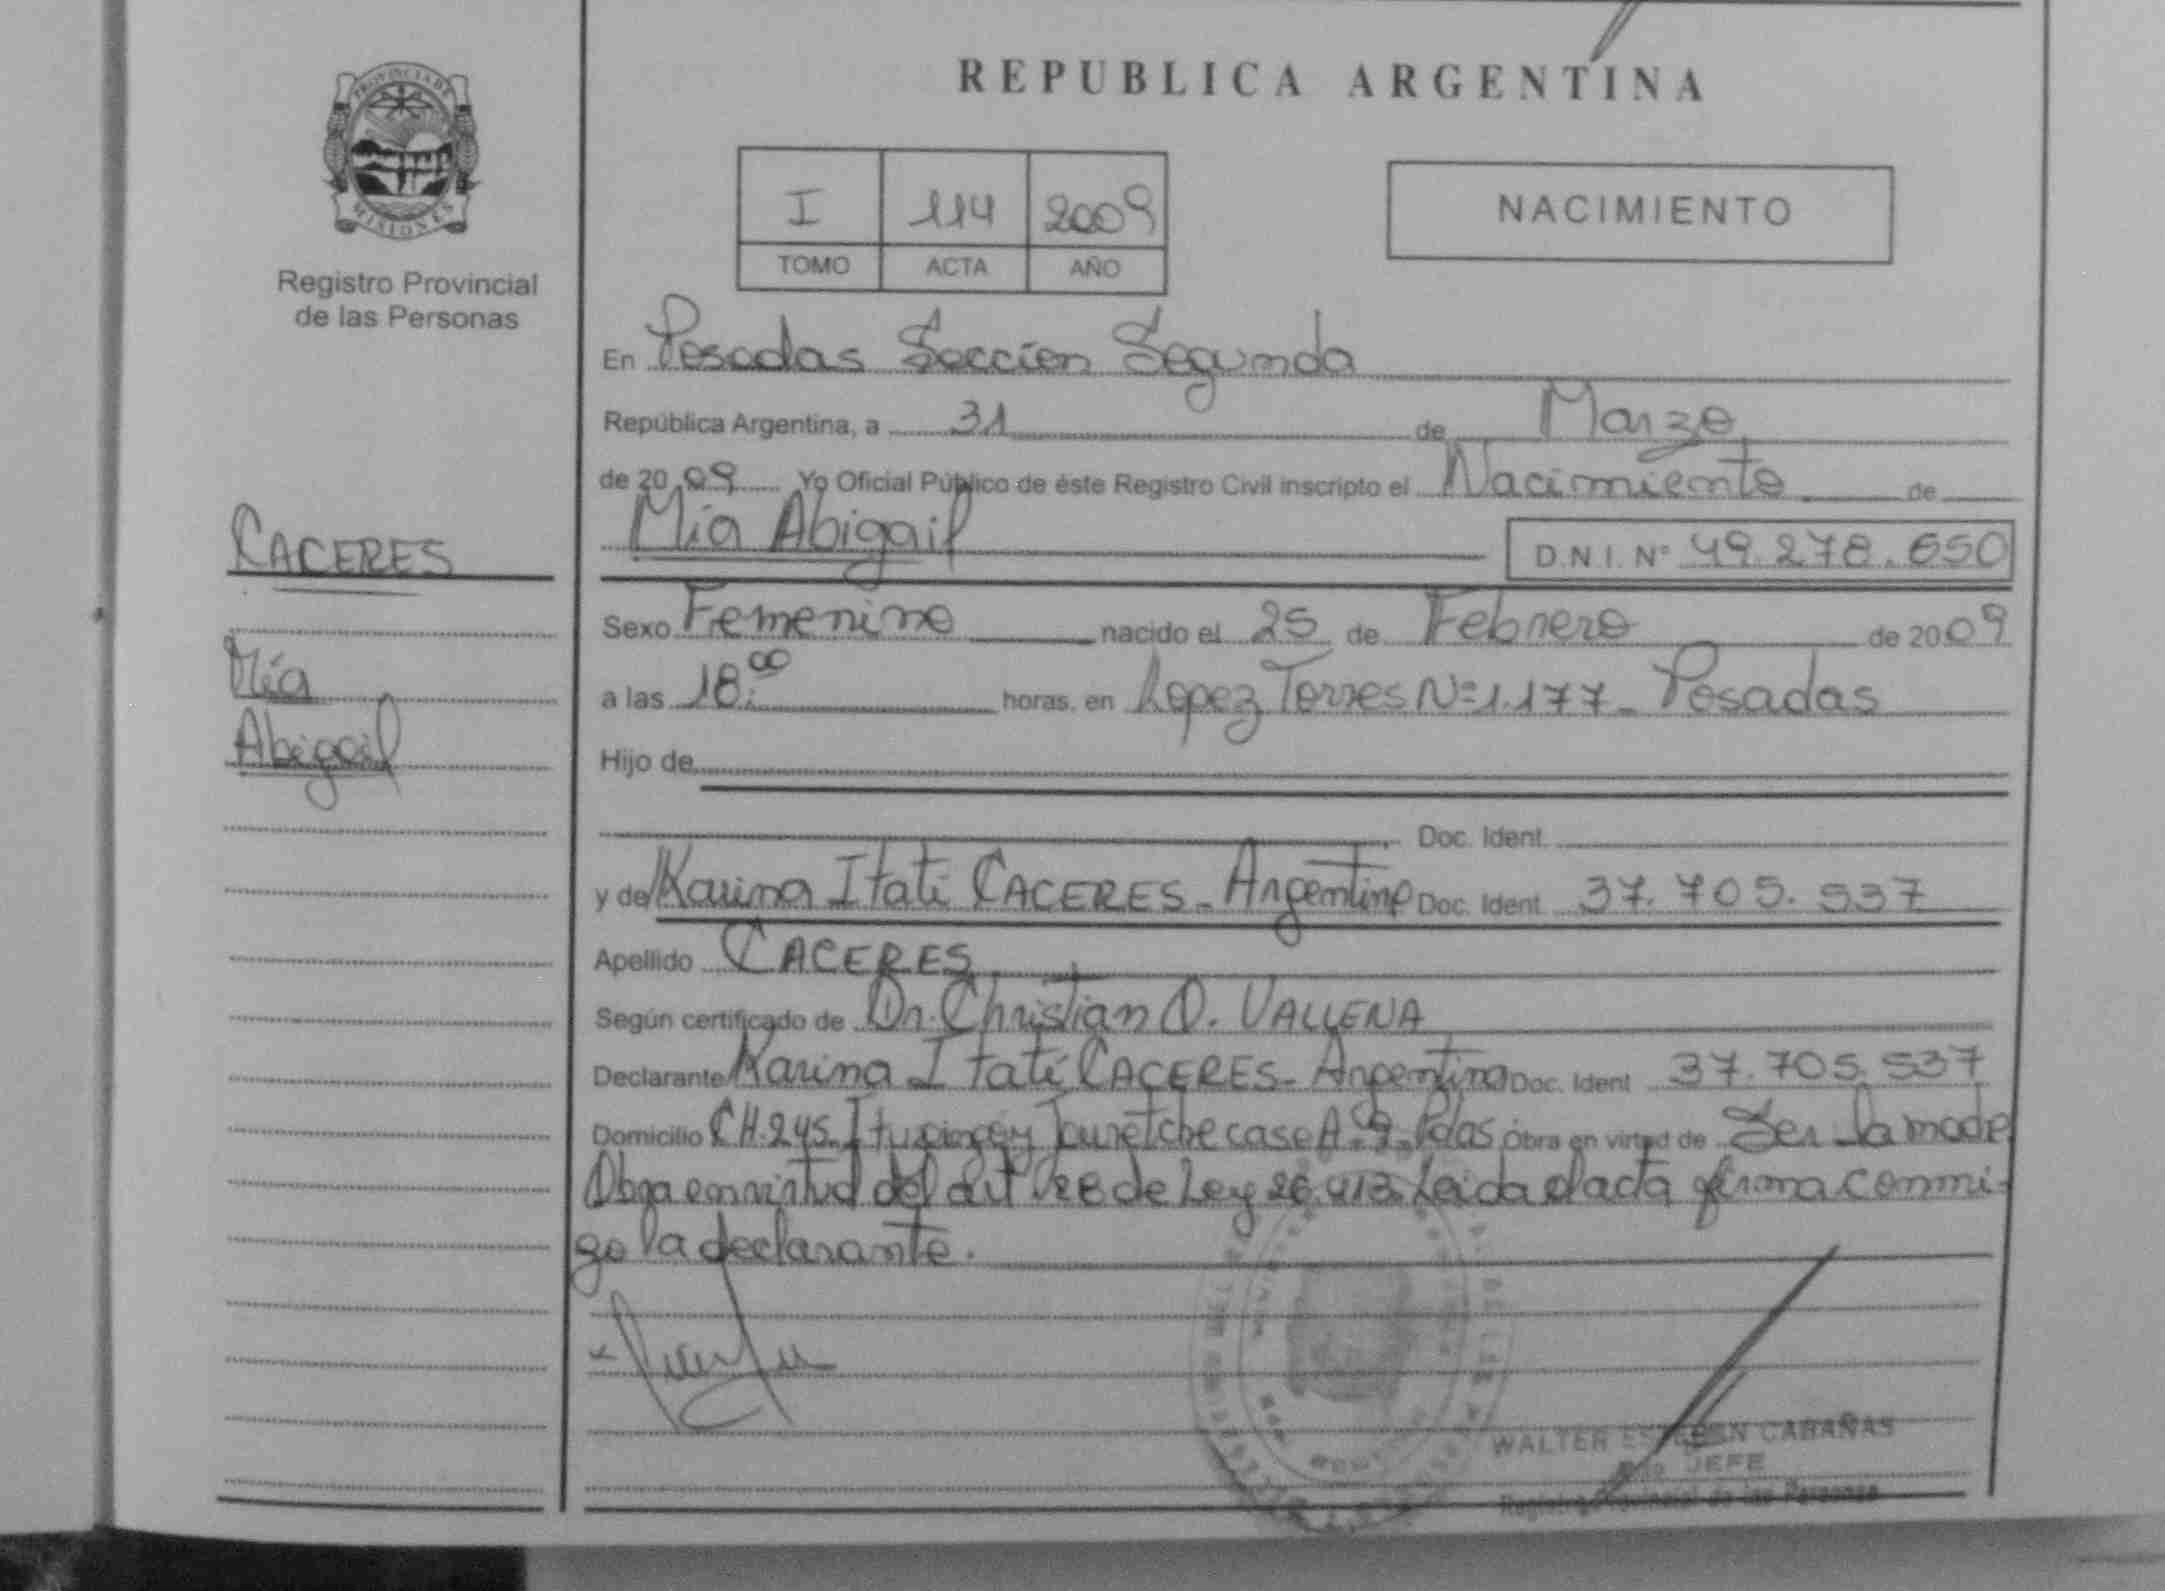 PROVINCIA DE
MISIONES
Registro Provincial
de las Personas
CACERES
Mía
Abigail
REPUBLICA ARGENTINA
I 114 2009
TOMO ACTA AÑO
NACIMIENTO
En Posadas Sección Segunda
República Argentina, a 31 de Marzo
de 2009 Yo Oficial Público de éste Registro Civil inscripto el Nacimiento de
Mía Abigail D.N.I. Nº 49.278.650
Sexo Femenino nacido el 25 de Febrero de 2009
a las 18:00 horas, en Lopez Torres Nº 1.177 - Posadas
Hijo de
Doc. Ident.
y de Karina Itatí CACERES - Argentina Doc. Ident. 37.705.537
Apellido CACERES
Según certificado de Dr. Christian O. VALLENA
Declarante Karina Itatí CACERES - Argentina Doc. Ident. 37.705.537
Domicilio CH. 245. Ituzaingó y Jauretche casa A. 9 - Pdas Obra en virtud de Ser la madre
Obra en virtud del art 28 de Ley 26.413. Leida el acta firma conmi-
go la declarante.
WALTER ESTEBAN CABAÑAS
JEFE
Registro Provincial de las Personas